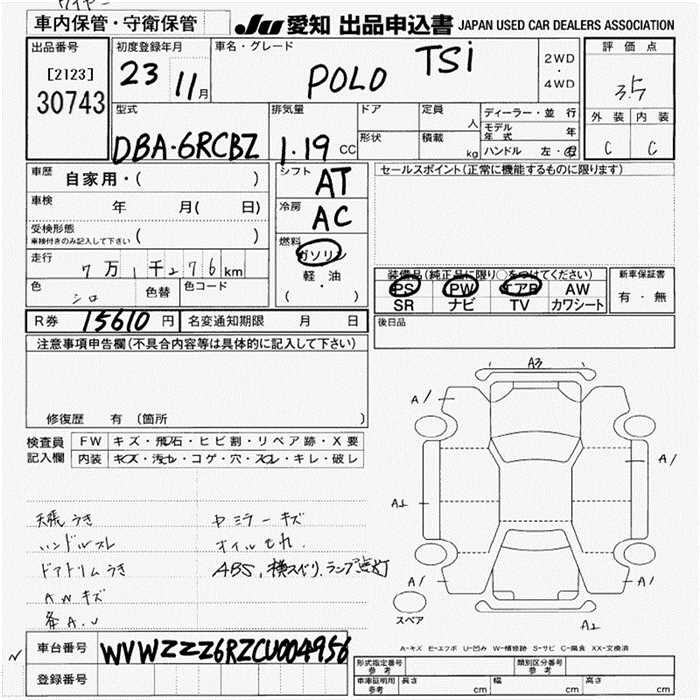 車内保管・守衛保管
JU 愛知 出品申込書 JAPAN USED CAR DEALERS ASSOCIATION
出品番号
[2123]
30743
初度登録年月
23 11月
車名・グレード
POLO TSi
2WD
・
4WD
評価点
3.5
外装 内装
C C
型式
DBA-6RCBZ
排気量
1.19 CC
ドア
形状
定員
人
積載
kg
ディーラー・並行
モデル年式 年
ハンドル 左・右
車歴
自家用・( )
車検
年 月( 日)
受検形態
車検付きのみ記入して下さい ( )
走行
7万1千276km
色
シロ
色替
色コード
シフト
AT
冷房
AC
燃料
ガソリン
軽・油
( ・ )
セールスポイント(正常に機能するものに限ります)
装備品(純正品に限り○をつけてください)
PS PW エアB AW
SR ナビ TV カワシート
新車保証書
有・無
後日品
R券 15610円
名変通知期限 月 日
注意事項申告欄(不具合内容等は具体的に記入して下さい)
修復歴 有 (箇所 )
検査員
記入欄
FW キズ・飛石・ヒビ割・リペア跡・X要
内装 キズ・汚れ・コゲ・穴・スレ・キレ・破レ
天張うき
ハンドルスレ
ドアトリムうき
AWキズ
各A.U
ヤミラーキズ
オイルもれ
ABS、横スベリ、ランプ点灯
A3
A1
A1
A1
A2
A1
A1
A2
スペア
A-キズ E-エクボ U-凹み W-補修跡 S-サビ C-腐食 XX-交換済
車台番号
WVWZZZ6RZCU004956
登録番号
形式指定番号
参考
類別区分番号
参考
車庫証明用
参考
長さ cm
幅 cm
高さ cm